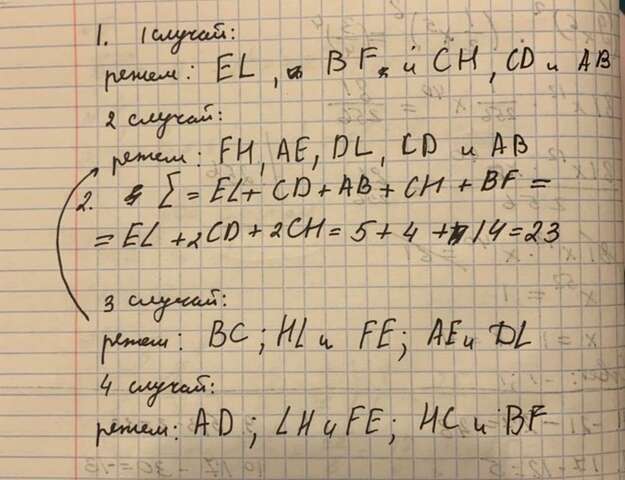 1. 1 случай:
режем: EL, BF и CH, CD и AB
2 случай:
режем: FH, AE, DL, CD и AB
2. Σ = EL + CD + AB + CH + BF =
= EL + 2CD + 2CH = 5 + 4 + 14 = 23
3 случай:
режем: BC; HL и FE; AE и DL
4 случай:
режем: AD; LH и FE; HC и BF